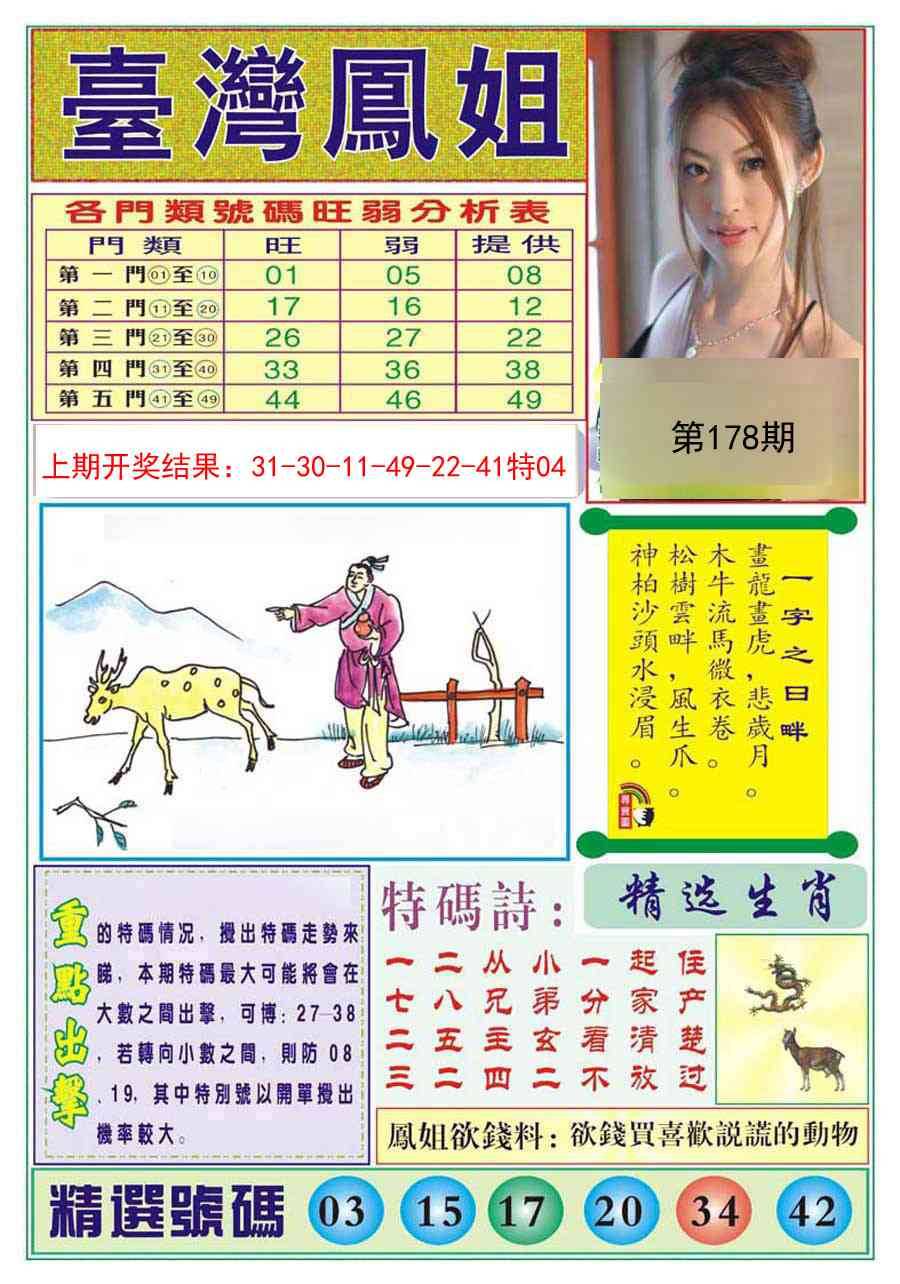 臺灣鳳姐
各門類號碼旺弱分析表
門類 旺 弱 提供
第一門01至10 01 05 08
第二門11至20 17 16 12
第三門21至30 26 27 22
第四門31至40 33 36 38
第五門41至49 44 46 49
第178期
上期开奖结果：31-30-11-49-22-41特04
一字之日畔
畫龍畫虎,悲歲月。
木牛流馬微衣卷。
松樹雲畔,風生爪。
神柏沙頭水浸眉。
重點出擊
的特碼情况，攪出特碼走勢來
睇，本期特碼最大可能將會在
大數之間出擊，可博：27—38
，若轉向小數之間，則防 08
、19，其中特别號以開單攪出
機率較大。
特碼詩：
一二从小一起住
七八兄弟分家产
二五主玄看清楚
三二四二不放过
精选生肖
鳳姐欲錢料：欲錢買喜歡説謊的動物
精選號碼 03 15 17 20 34 42